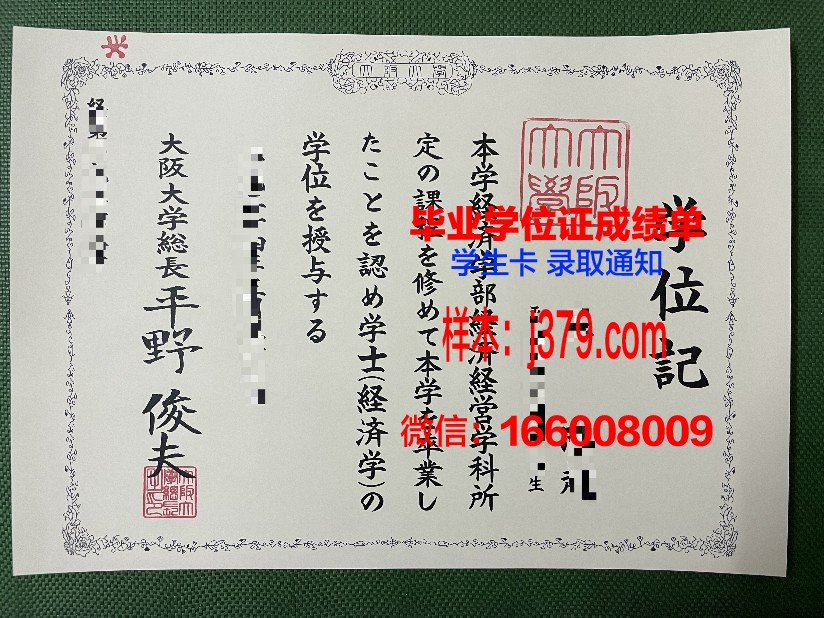 学位記
大阪大學
生
本学経済学部経済経営学科所
定の課程を修めて本学を卒業し
たことを認め学士(経済学)の
学位を授与する
大阪大学総長 平野 俊夫
毕业学位证成绩单
学生卡 录取通知
样本:j379.com
微信:166008009